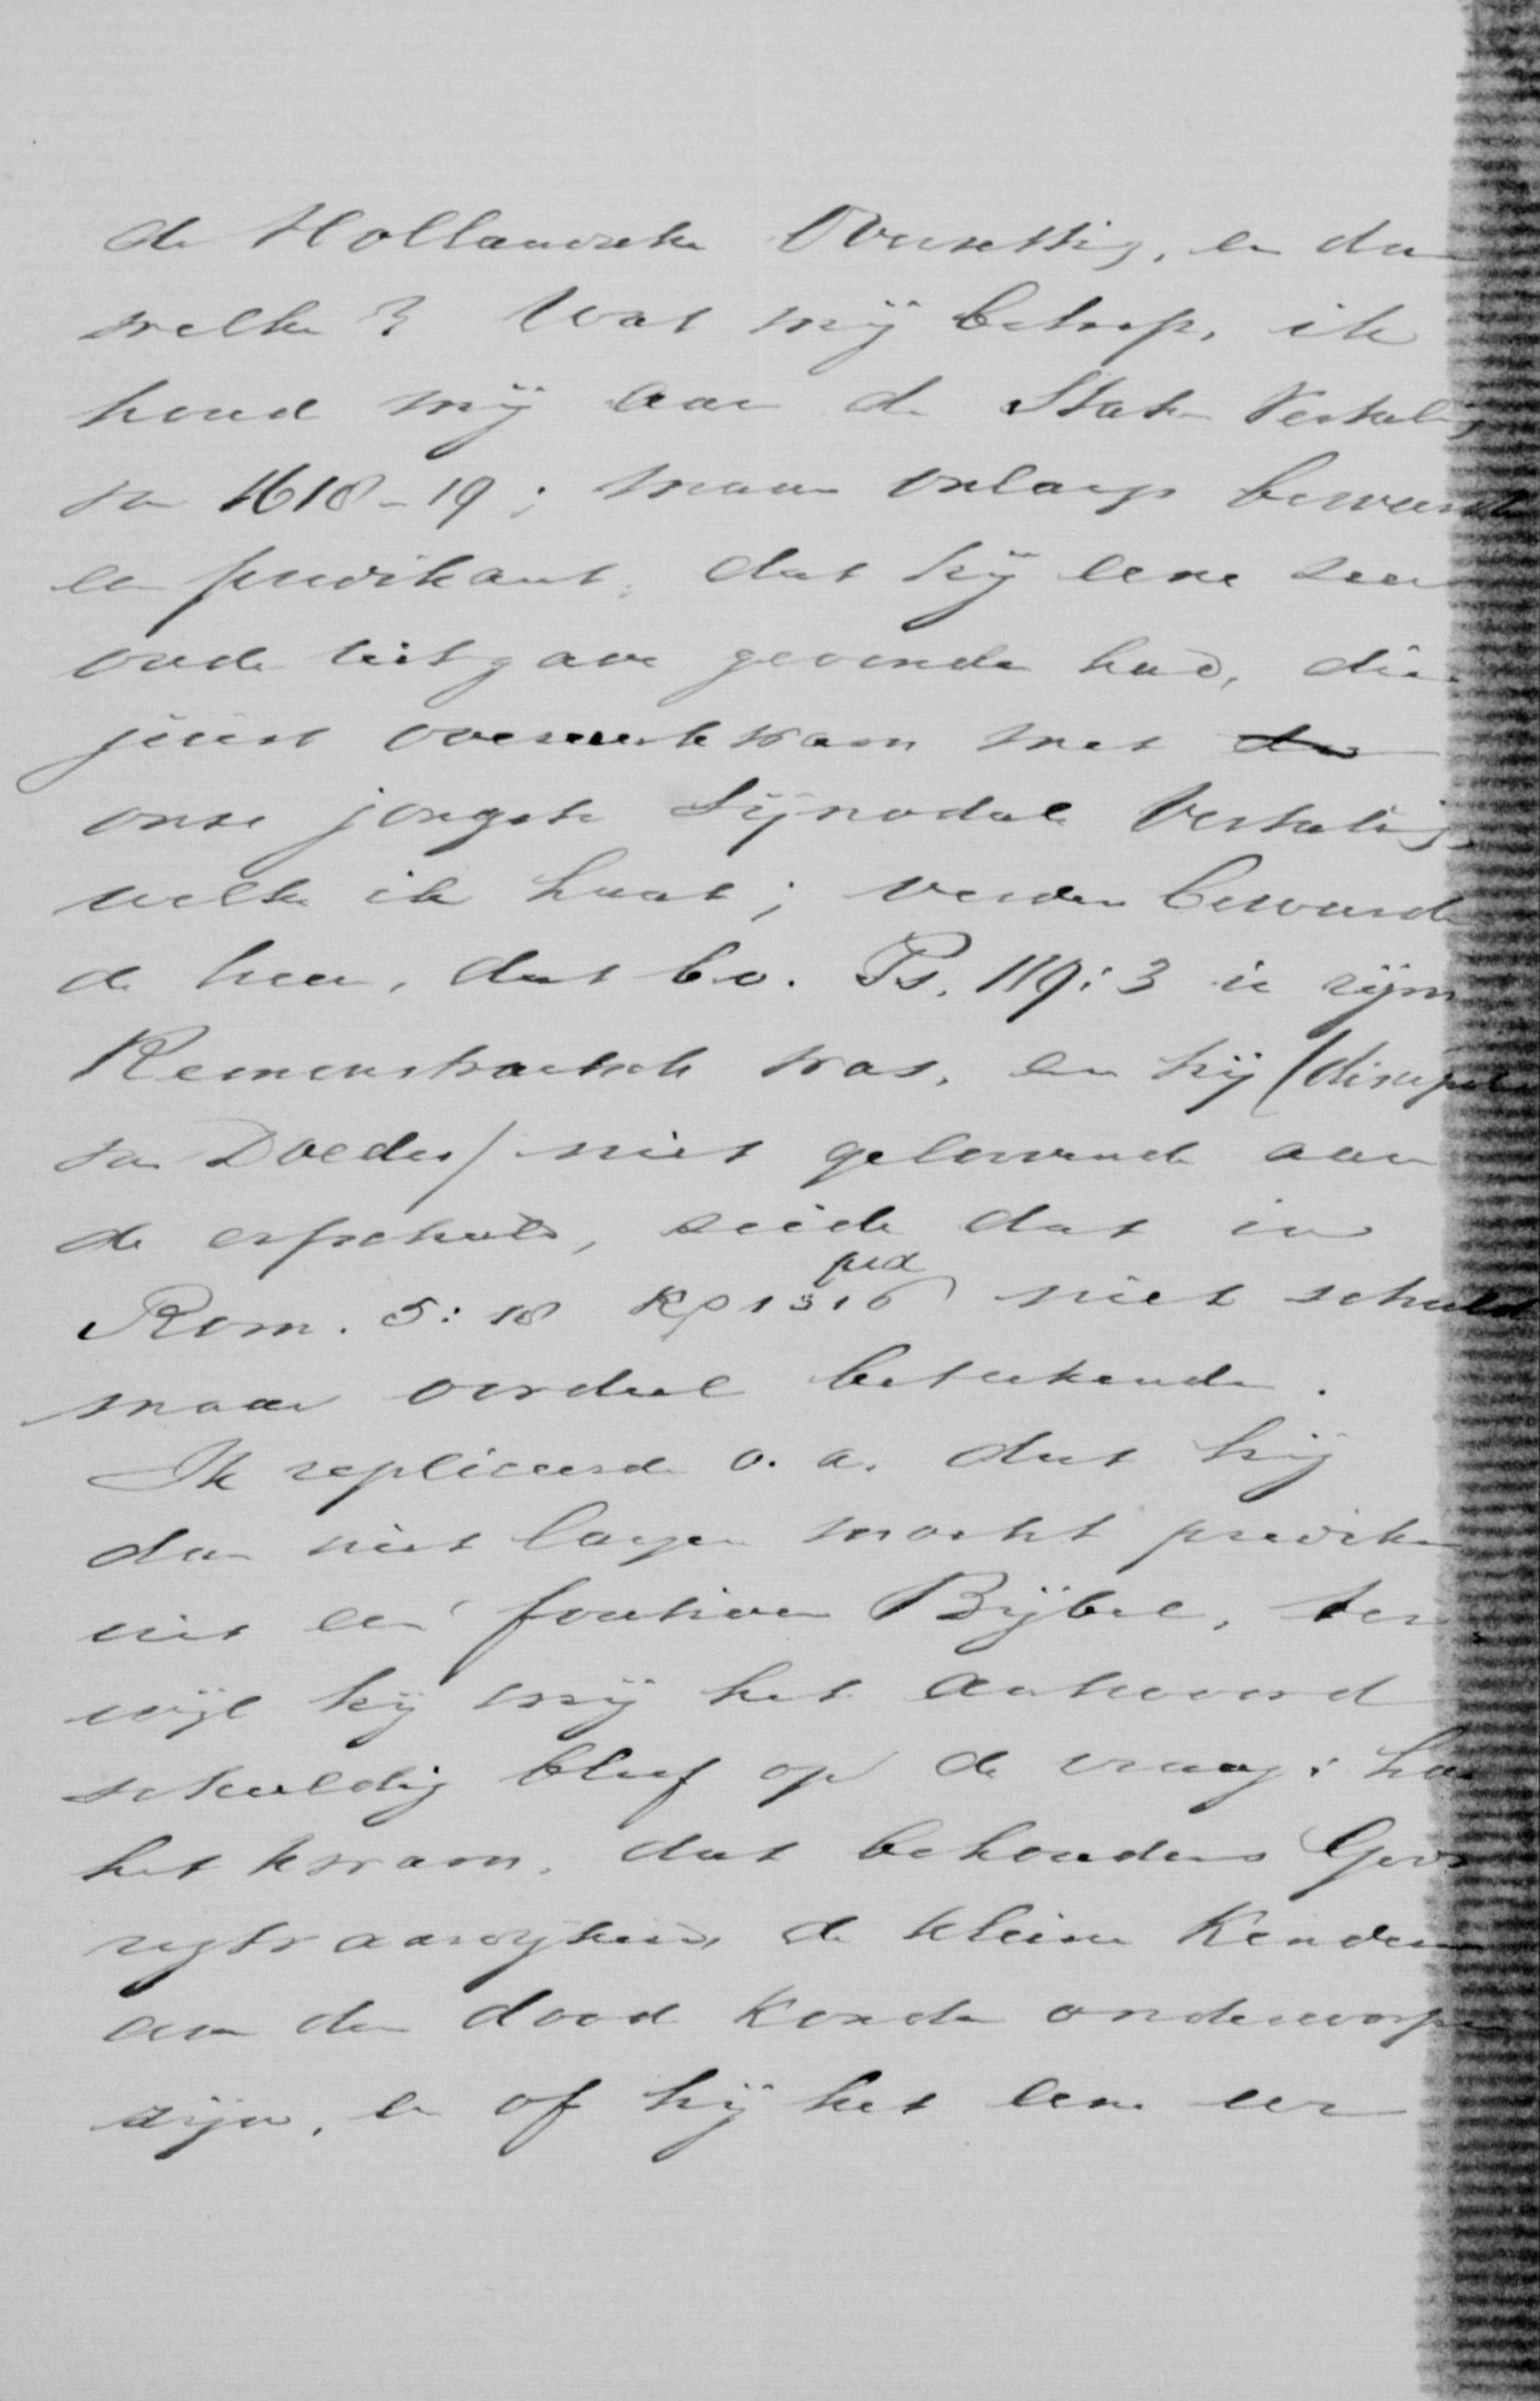 de Hollandsche Overzetting, en dan
welke? Wat mij betreft, ik
houd mij aan de Staten Vertaling
van 1618-19; maar onlangs beweerde
een predikant, dat hij eene zeer
oude uitgave gevonden had, die
juist overeenkwam met den
onze jongste Synodale Vertaling,
welke ik haat; verder beweerde
de heer, dat bv. Ps. 119:3 in rijm
Remonstrantsch was, en hij (discipel
van Doedes) niet geloovende aan
de erfschuld, zeide dat in
Rom. 5:18 niet schuld
maar oordeel beteekende.
Ik repliceerde o.a. dat hij
dan niet langer mocht prediken
uit een foutieven Bijbel, ter-
wijl hij mij het antwoord
schuldig bleef op de vraag: hoe
het kwam, dat behoudens Gods
regtvaardigheid, de kleine Kinderen
aan den dood konden onderworpen
zijn, en of hij het eens een